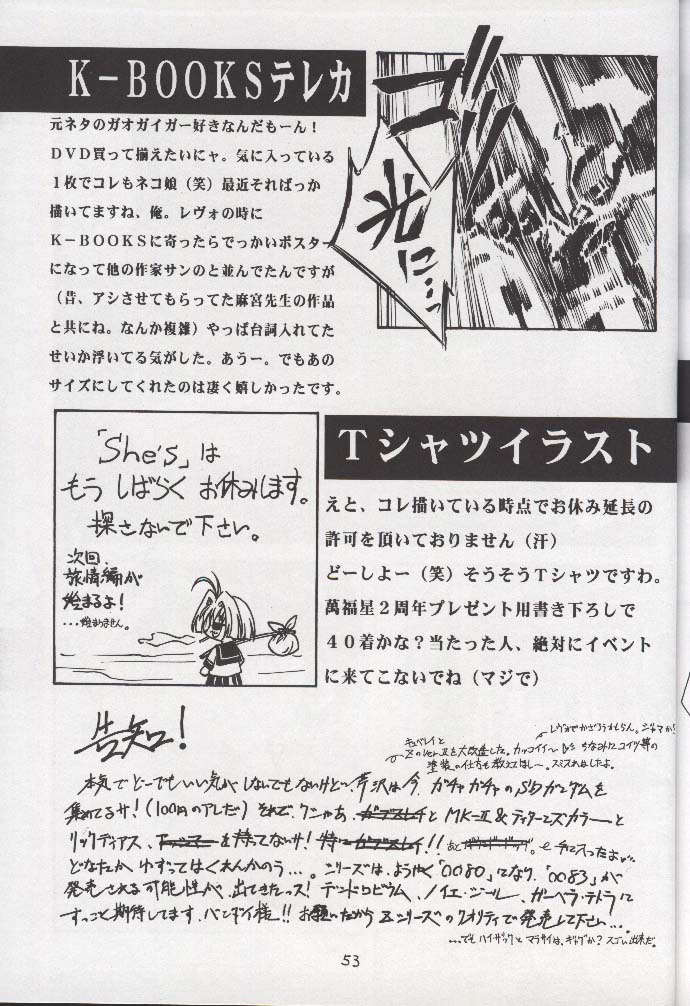 K-BOOKSテレカ
元ネタのガオガイガー好きなんだもーん！
DVD買って揃えたいにャ。気に入っている
１枚でコレもネコ娘（笑）最近そればっか
描いてますね、俺。レヴォの時に
K-BOOKSに寄ったらでっかいポスター
になって他の作家サンのと並んでたんですが
（昔、アシさせてもらってた麻宮先生の作品
と共にね。なんか複雑）やっぱ台詞入れてた
せいか浮いてる気がした。あうー。でもあの
サイズにしてくれたのは凄く嬉しかったです。
光に…っ
「She's」は
もうしばらくお休みします。
探さないで下さい。
次回、
旅情編が
始まるよ！
…始まりません。
Tシャツイラスト
えと、コレ描いている時点でお休み延長の
許可を頂いておりません（汗）
どーしよー（笑）そうそうTシャツですわ。
萬福星２周年プレゼント用書き下ろしで
４０着かな？当たった人、絶対にイベント
に来てこないでね（マジで）
告知！
キュベレイと
塗装の仕方も教えてほしー。
本気でどーでもいい気がしないでもないけどー、芹沢は今、ガチャガチャのSDガンダムを
集めてるサ！（100円のアレだ）それで、
と MK-Ⅱ＆ティターンズカラーと
リックディアス、
を持ってないサ！
どなたか ゆずってはくれんかのう…。シリーズは、ようやく「0080」になり、「0083」が
発売される可能性が、出てきたっス！デンドロビウム、ノイエ・ジール、ガーベラ・テトラに
すっごく期待してます、バンダイ様！！お願いだからZシリーズのクオリティで発売して下さい…。
…でもハイザックとマラサイは、ギャグか？スゴい出来だ。
53